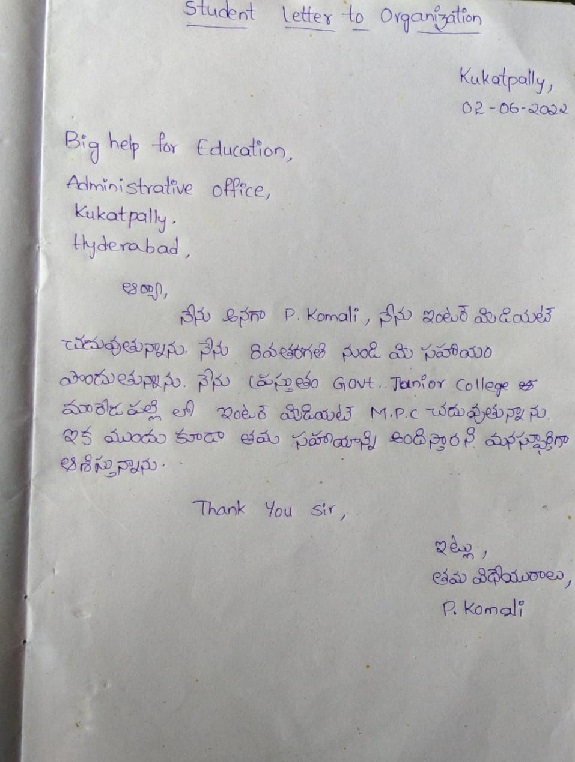 Student Letter to Organization
Kukatpally,
02-06-2022
Big help for Education,
Administrative office,
Kukatpally.
Hyderabad,
అయ్యా,
నేను అనగా P. Komali, నేను ఇంటర్ మిడియట్
చదువుతున్నాను. నేను 8వతరగతి నుండి మీ సహాయం
పొందుతున్నాను. నేను ప్రస్తుతం Govt. Junior College
మారేడ్ పల్లి లో ఇంటర్ మీడియట్ M.P.C చదువుతున్నాను
ఇక ముందు కూడా తమ సహాయాన్ని అందిస్తారని మనస్ఫూర్తిగా
ఆశిస్తున్నాను.
Thank You Sir,
ఇట్లు,
తమ విధేయురాలు,
P. Komali